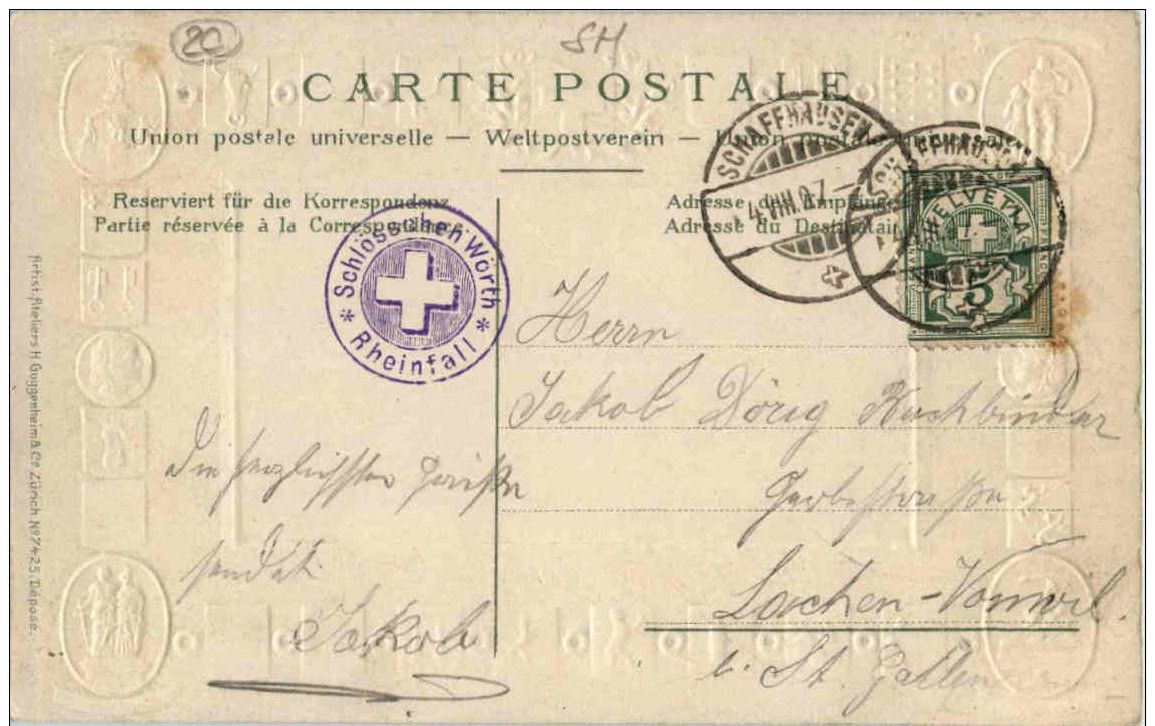 20
SH
CARTE POSTALE
Union postale universelle — Weltpostverein — Union postale
Reserviert für die Korrespondenz
Partie réservée à la Correspondance
Adresse des Empfängers
Adresse du Destinataire
SCHAFFHAUSEN
4.VIII.07.–
SCHAFFHAUSEN
HELVETIA
5
* Schlösschen Wörth *
Rheinfall
Herrn
Jakob Dörig Buchbinder
Gerbestrasse
Lachen-Vonwil.
b. St. Gallen
Die herzlichsten Grüsse
sendet
Jakob
Artist. Ateliers H. Guggenheim & Co. Zürich No 7425. Déposé.